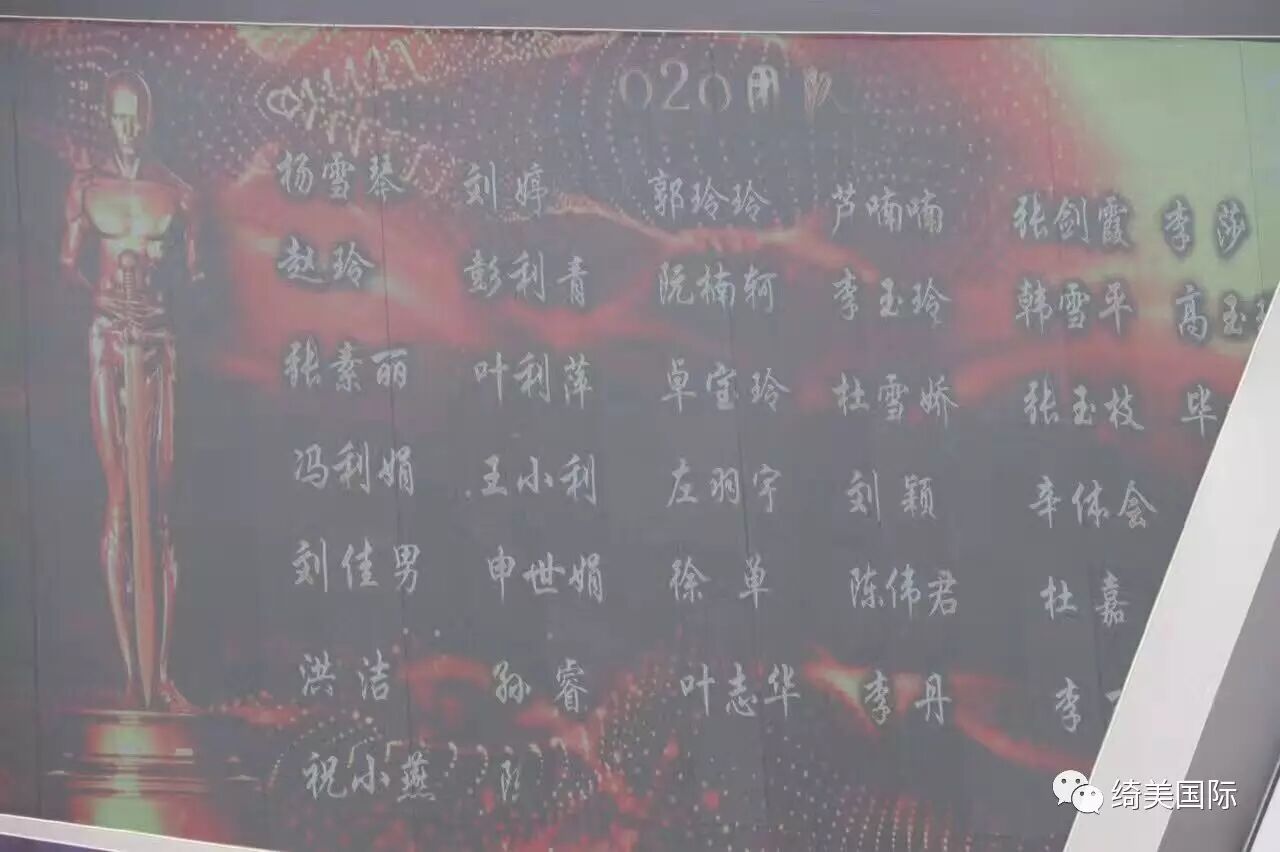 O2O团队
杨雪琴 刘婷 郭玲玲 芦喃喃 张剑霞 李莎
赵玲 彭利青 阮楠轲 李玉玲 韩雪平 高玉
张素丽 叶利萍 卓宝玲 杜雪娇 张玉枝 毕
冯利娟 王小利 左羽宇 刘颖 辛体会
刘佳男 申世娟 徐单 陈伟君 杜嘉
洪洁 孙睿 叶志华 李丹 李
祝小燕
绮美国际